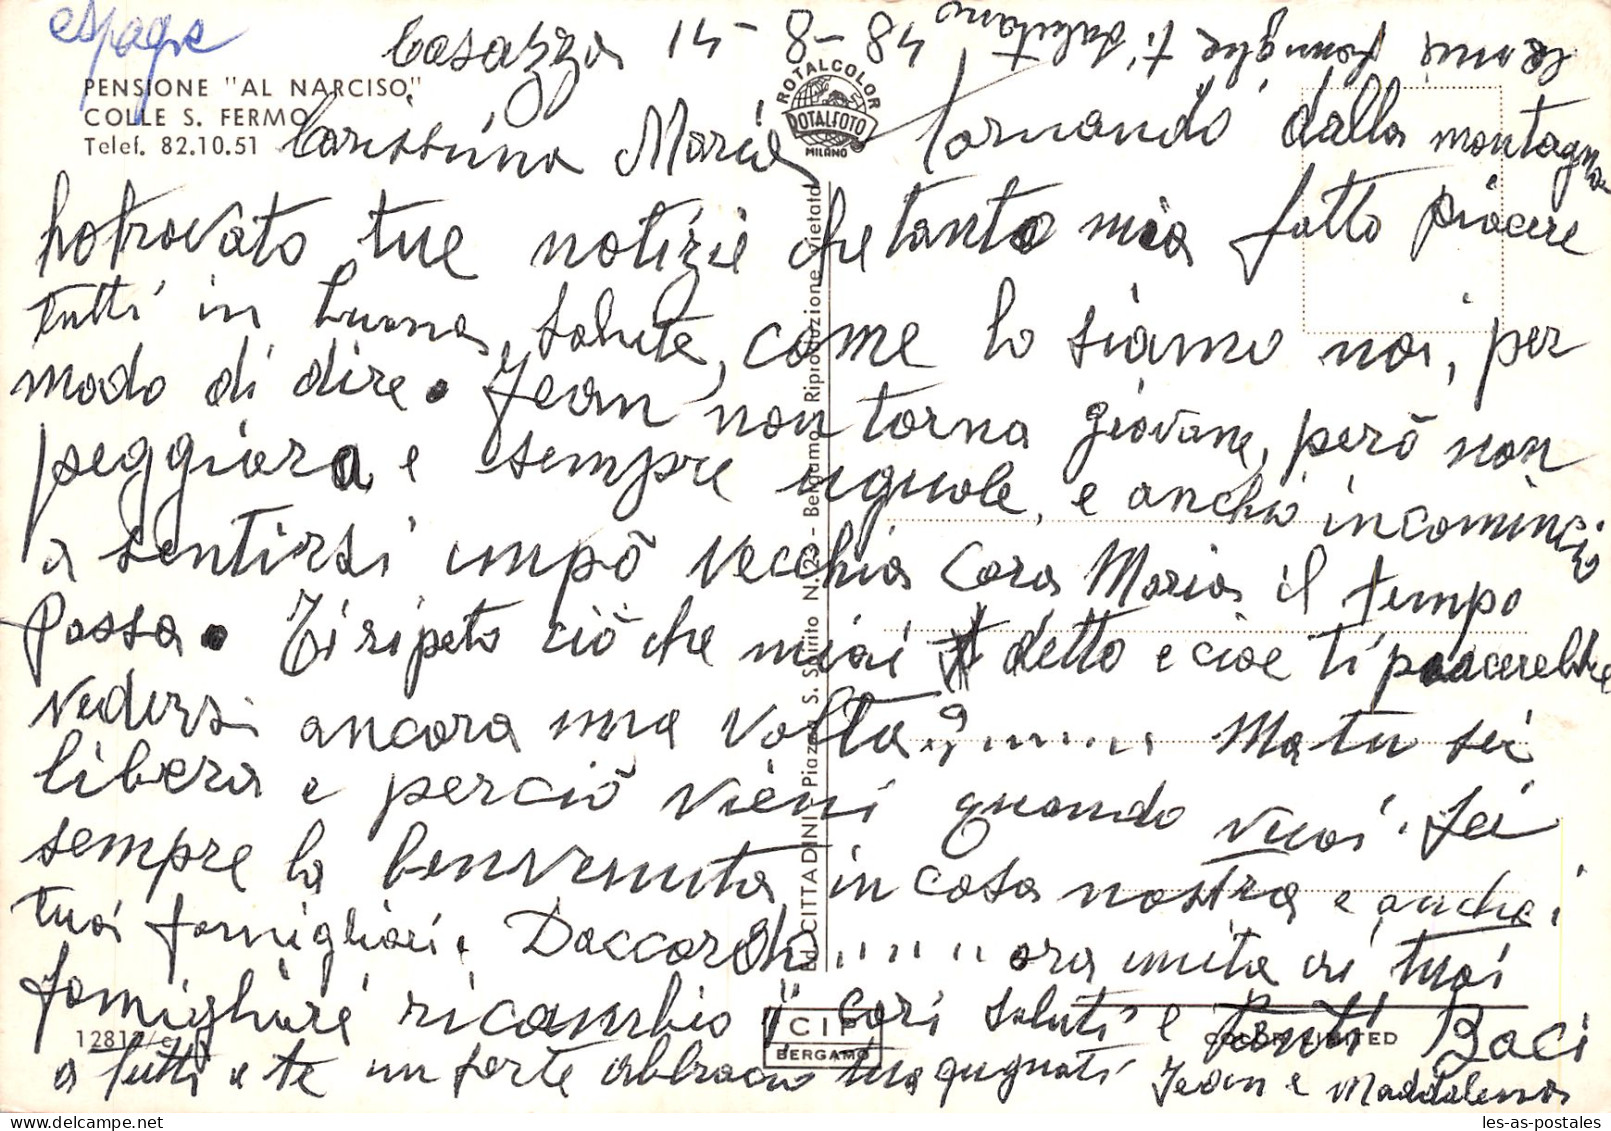 espagne
Casazza 14-8-84
PENSIONE "AL NARCISO"
COLLE S. FERMO
Telef. 82.10.51
ROTALCOLOR
ROTALFOTO
MILANO
Carissima Maria Tornando dalla montagna
ho trovato tue notizie che tanto mia fatto piacere
tutti in buona salute, come lo siamo noi, per
modo di dire. Jean non torna giovane, però non
peggiora e sempre uguale, e anchio incomincio
a sentirsi umpò vecchia Cara Maria il tempo
passa. Ti ripeto ciò che miai detto e cioe ti piacerebbe
vedersi ancora una volta? ...... Ma tu sei
libera e perciò vieni quando vuoi. Sei
sempre la benvenuta in casa nostra e anche i
tuoi famigliari. Daccordo ...... ora unita ai tuoi
famigliari ricambio i cari saluti e tanti Baci
a tutti e te un forte abbraccio tua Jean e Maddalena
e famiglie ti salutano
Ed. CITTADINI Piazza S. Spirito N. 23 - Bergamo Riproduzione Vietata
12817/c
CIP
BERGAMO
COLOR LIMITED
les-as-postales.com